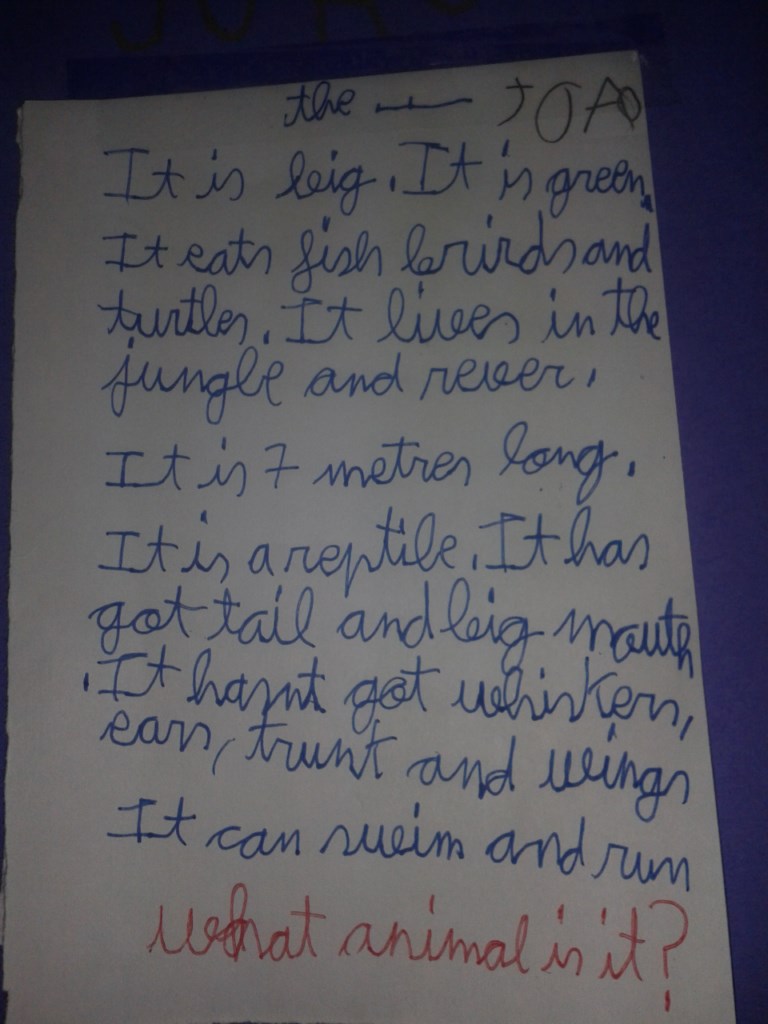 the — JOAO
It is big. It is green.
It eats fish brirds and
turtles. It lives in the
jungle and rever.
It is 7 metres long.
It is a reptile. It has
got tail and big mouth
. It hasnt got whiskers,
ears, trunk and wings
It can swim and run
what animal is it?